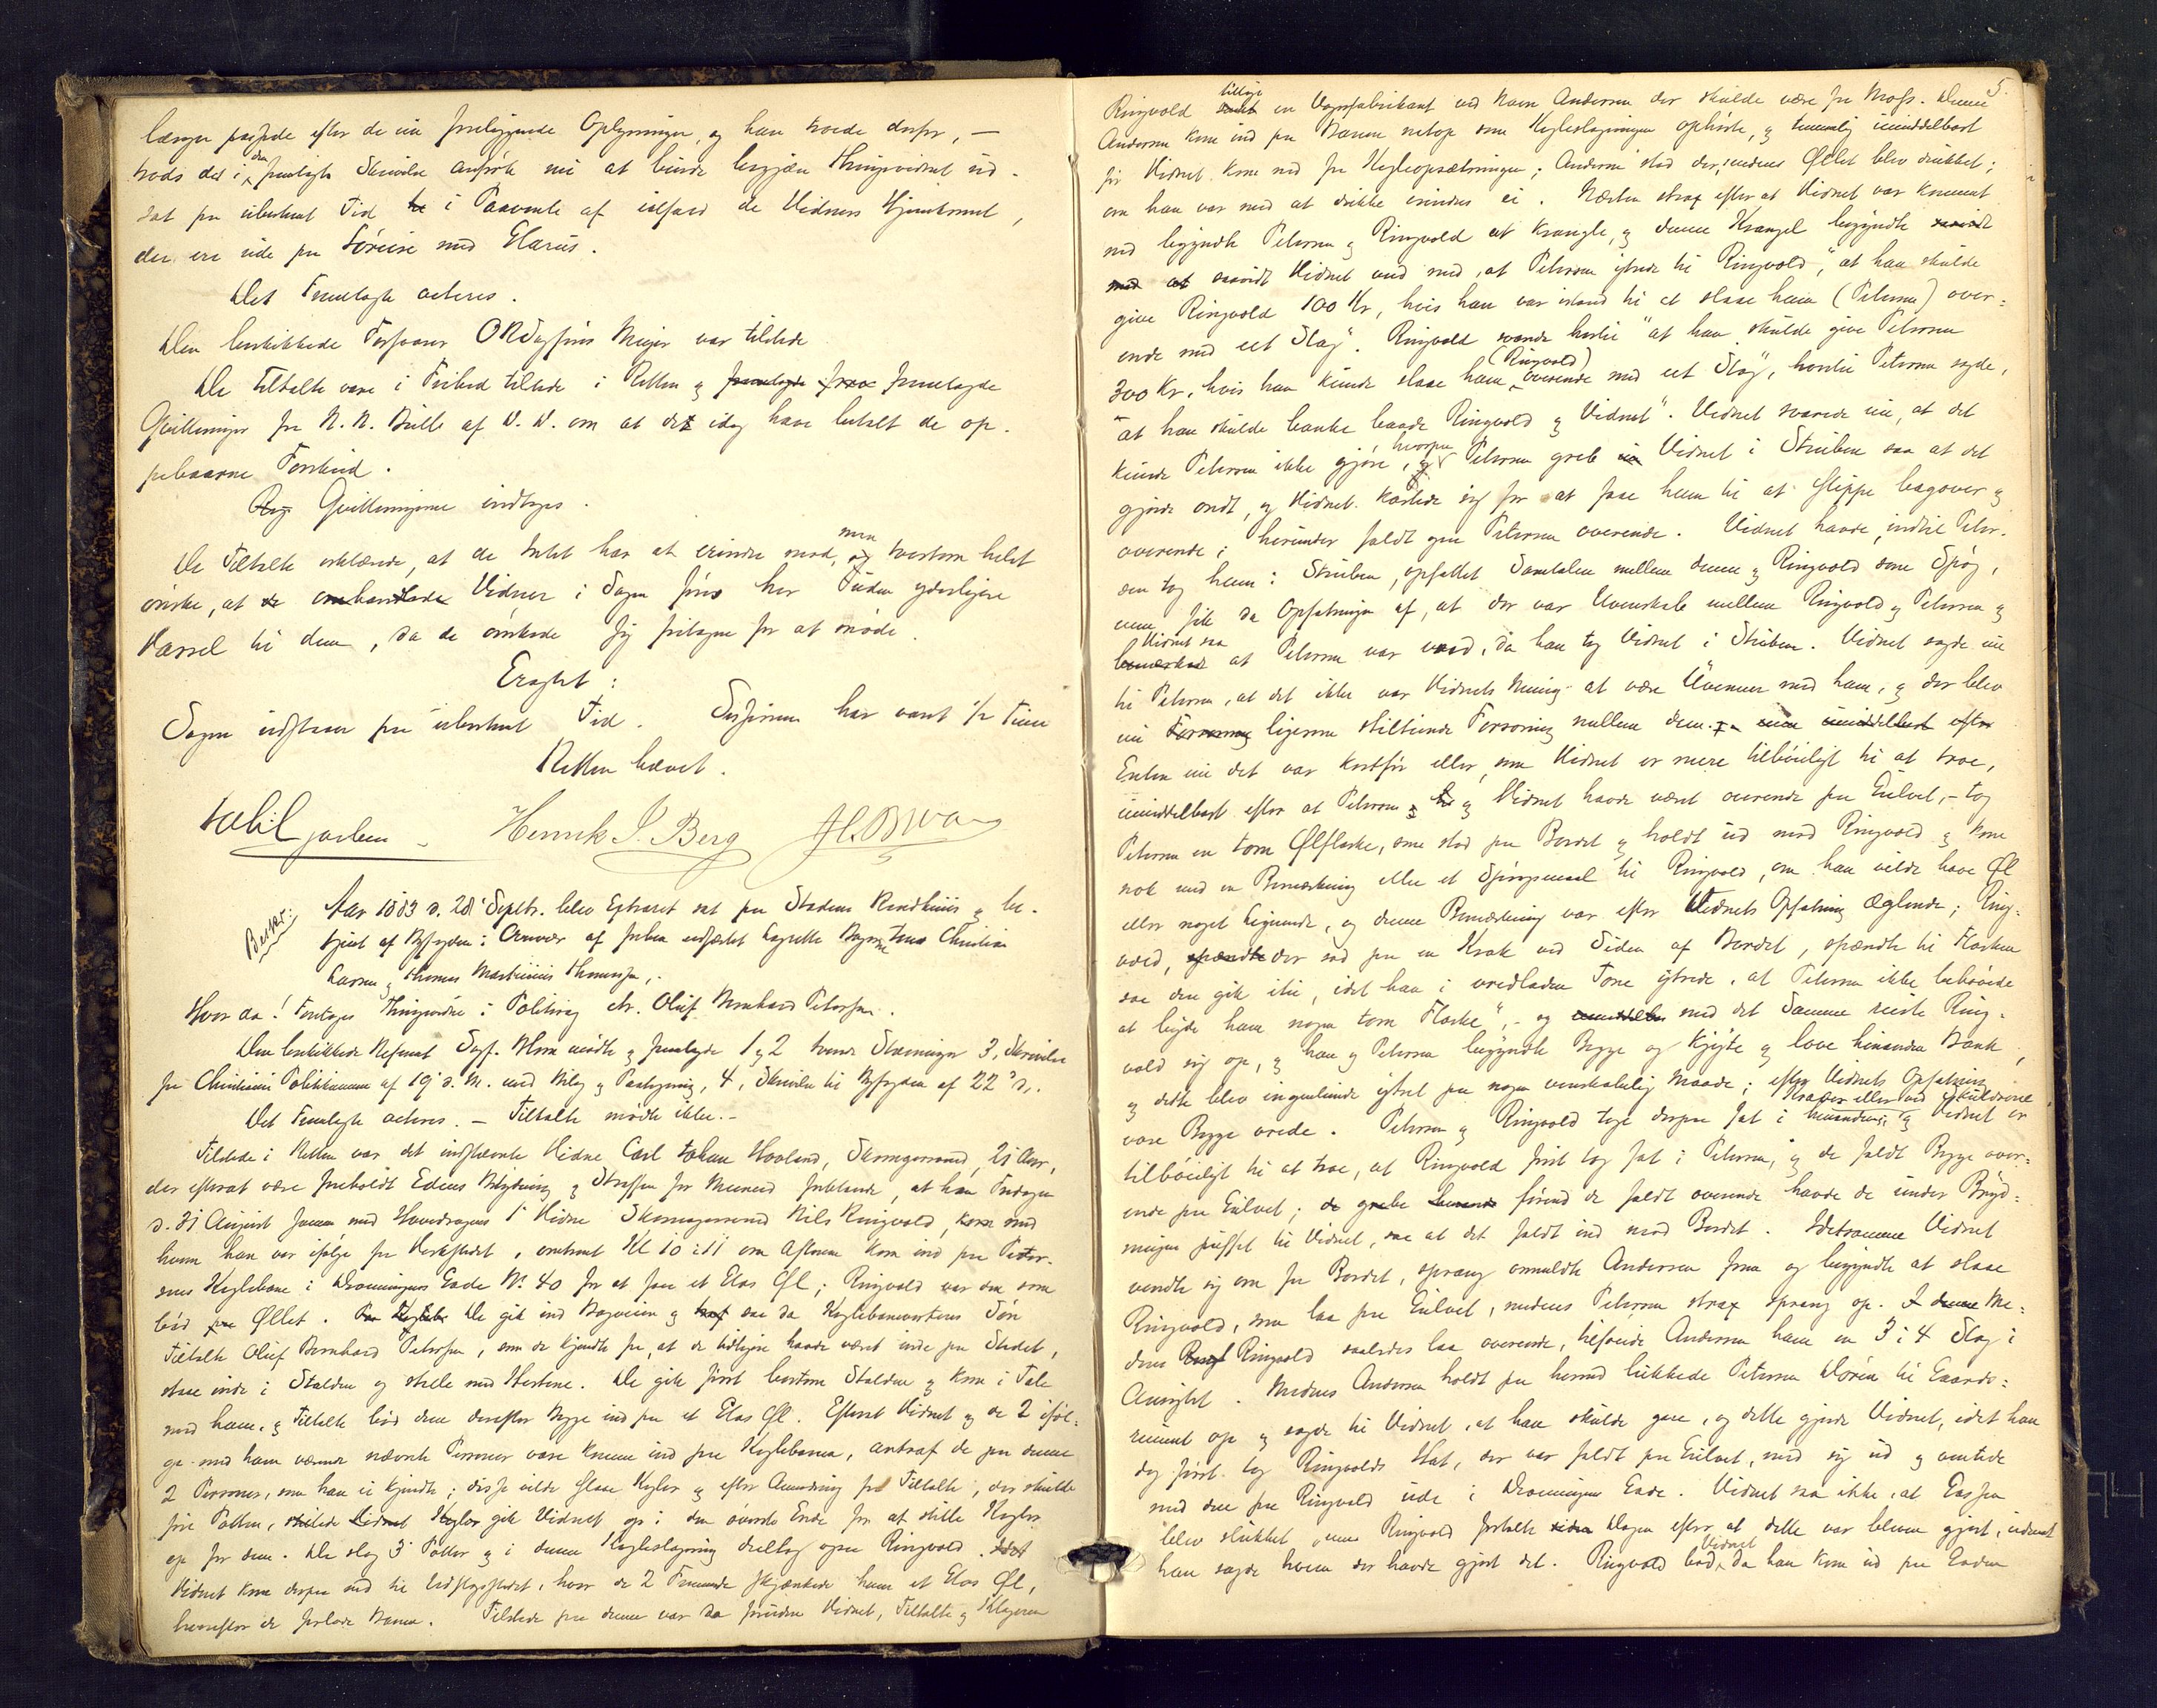 længer paafside efter de nu foreliggende Oplysninger, og han troede derfor, —
trods det i den fremlagte Skrivelse anførte nu at burde begjære Thingsvidnet ud-
sat paa ubestemt Tid i Paavente af ialfald de Vidners Hjemkomst,
der ere ude paa Søreise med Glarus.
Det Fremlagte acteres.
Den beskikkede Forsvarer O R Dugfins Meyer var tilstede
De Tiltalte vare i Frihed tilstede i Retten og fremlagde
Qvitteringer fra N. N. Bulle af D. D. om at de idag have betalt de op-
pebaarne Forskud.
Qvitteringerne indtoges.
De Tiltalte erklærede, at de Intet har at erindre mod, men tvertom helst
ønske, at Vidner i Sagen føres her Uden yderligere
Varsel til dem, da de ønskede sig fritagne for at møde.
Eragtet:
Sagen udstaar paa ubestemt Tid. Sessionen har varet 1/2 Time
Retten hævet.
Henrik J. Berg
Beskr:
Aar 1883 d. 28' Septbr. blev Extraret sat paa Stadens Raadhuus og be-
tjent af Byfogden i Overvær af forhen edfæstet Lagrette Mænd Jens Christian
Larsen og Thomas Martinius Thomassen.
Hvor da! Foretoges Thingsvidne i Politisag ctr. Oluf Bernhard Petersen.
Den beskikkede Referent Sagf. Horn mødte og fremlagde 1 og 2 tvende Stævninger 3, Skrivelse
fra Christiania Politikammer af 19' d. M. med Bilag og Paategning, 4, Skrivelse til Byfogden af 22' d.
Det Fremlagte acteres. — Tiltalte mødte ikke.-
Tilstede i Retten var det indstævnte Vidne Carl Johan Hovland, Skomagersvend, 21 Aar,
der efterat være foreholdt Edens Betydning og Straffen for Meened forklarede, at han Fredagen
d. 31 August sammen med Hovedsagens 1' Vidne Skomagersvend Nils Ringvold, med
hvem han var ifølge fra Værkstedet, omtrent Kl 10 à 11 om Aftenen kom ind paa Peter-
sens Keglebane i Dronningens Gade No. 40 for at faae et Glas Øl; Ringvold var den som
bød paa Øllet. De gik ind Bagveien og saa da Keglebaneværtens Søn
Tiltalte Oluf Bernhard Petersen, som de kjendte fra, at de tidligere havde været inde paa Stedet,
staae inde i Stalden og stelle med Hestene. De gik først bortom Stalden og kom i Tale
med ham, og Tiltalte bød dem derefter Begge ind paa et Glas Øl. Efterat Vidnet og de 2 iføl-
ge med ham værende nævnte Personer vare komne ind paa Keglebanen, antraf de paa denne
2 Personer, som han ei kjendte; disse vilde slaae Kegler og efter Anmodning fra Tiltalte, der skulde
føre Potten, gik Vidnet op i den øverste Ende for at stille Kegler
op for dem. De slog 3 Potter og i denne Kegleslagning deeltog ogsaa Ringvold.
Vidnet kom derpaa ned til Udslagsstedet, hvor de 2 Fremmede skjænkede ham et Glas Øl,
hvorefter de forlode Banen. Tilstede paa denne var da foruden Vidnet, Tiltalte og Klageren
5.
Ringvold tillige en Vognfabrikant ved Navn Andersen der skulde være fra Moss. Denne
Andersen kom ind paa Banen netop som Kegleslagningen ophørte, og temmelig umiddelbart
før Vidnet kom ned fra Kegleopsætningen; Andersen stod der, medens Øllet blev drukket;
om han var med at drikke erindres ei. Næsten strax efter at Vidnet var kommet
ned begyndte Petersen og Ringvold at krangle, og denne Krangel begyndte
saavidt Vidnet ved med, at Petersen ytrede til Ringvold, "at han skulde
give Ringvold 100 Kr, hvis han var istand til at slaae ham (Petersen) over-
ende med eet Slag". Ringvold svarede hertil "at han skulde give Petersen
300 Kr, hvis han kunde slaae ham (Ringvold) overende med eet Slag", hvortil Petersen sagde,
"at han skulde banke baade Ringvold og Vidnet". Vidnet svarede nu, at det
kunde Petersen ikke gjøre, hvorpaa Petersen greb Vidnet i Struben saa at det
gjorde ondt, og Vidnet kastede sig for at faae ham til at slippe bagover og
overende; herunder faldt ogsaa Petersen overende. Vidnet havde, indtil Peter-
sen tog ham i Struben, opfattet Samtalen mellem denne og Ringvold som Spøg,
men fik da Opfatningen af, at der var Uvenskab mellem Ringvold og Petersen og
Vidnet saa at Petersen var vred, da han tog Vidnet i Struben. Vidnet sagde nu
til Petersen, at det ikke var Vidnets Mening at være Uvenner med ham, og der blev
nu ligesom stiltiende Forsoning mellem dem.
Enten nu det var kortfør eller, som Vidnet er mere tilbøieligt til at troe,
umiddelbart efter at Petersen og Vidnet havde været overende paa Gulvet, - tog
Petersen en tom Ølflaske, som stod paa Bordet og holdt ud mod Ringvold og kom
nok med en Bemærkning eller et Spørgsmaal til Ringvold, om han vilde have Øl
eller noget Lignende, og denne Bemærkning var efter Vidnets Opfatning Æglende; Ring-
vold, der sad paa en Krak ved Siden af Bordet, spændte til Flasken
saa den gik itu, idet han i vredladen Tone ytrede, at Petersen ikke behøvede
at byde ham nogen tom Flaske", - og med det Samme reiste Ring-
vold sig op, og han og Petersen begyndte Begge og kjegte og love hinanden Bank,
og dette blev ingenlunde ytret paa nogen venskabelig Maade; efter Vidnets Opfatning
vare Begge vrede. Petersen og Ringvold toge derpaa fat i hinandens Kraver eller ved Skuldrene og Vidnet er
tilbøieligt til at troe, at Ringvold først tog fat i Petersen, og de faldt Begge over-
ende paa Gulvet; førend de faldt overende havde de under Bryd-
ningen puffet til Vidnet, saa at det faldt ind mod Bordet. Idetsamme Vidnet
vendte sig om fra Bordet, sprang anmeldte Andersen frem og begyndte at slaae
Ringvold, som laa paa Gulvet, medens Petersen strax sprang op. Me-
dens Ringvold saaledes laa overende, tilføiede Andersen ham en 3 à 4 Slag i
Ansigtet. Medens Andersen holdt paa hermed lukkede Petersen Døren til Gaards-
rummet op og sagde til Vidnet, at han skulde gaae, og dette gjorde Vidnet, idet han
dog først tog Ringvolds Hat, der var faldt paa Gulvet, med sig ud og ventede
med den paa Ringvold ude i Dronningens Gade. Vidnet saa ikke, at Gassen
blev slukket, men Ringvold fortalte Dagen efter at dette var bleven gjort, uden at
han sagde hvem der havde gjort det. Ringvold bad Vidnet da han kom ud paa Gaden